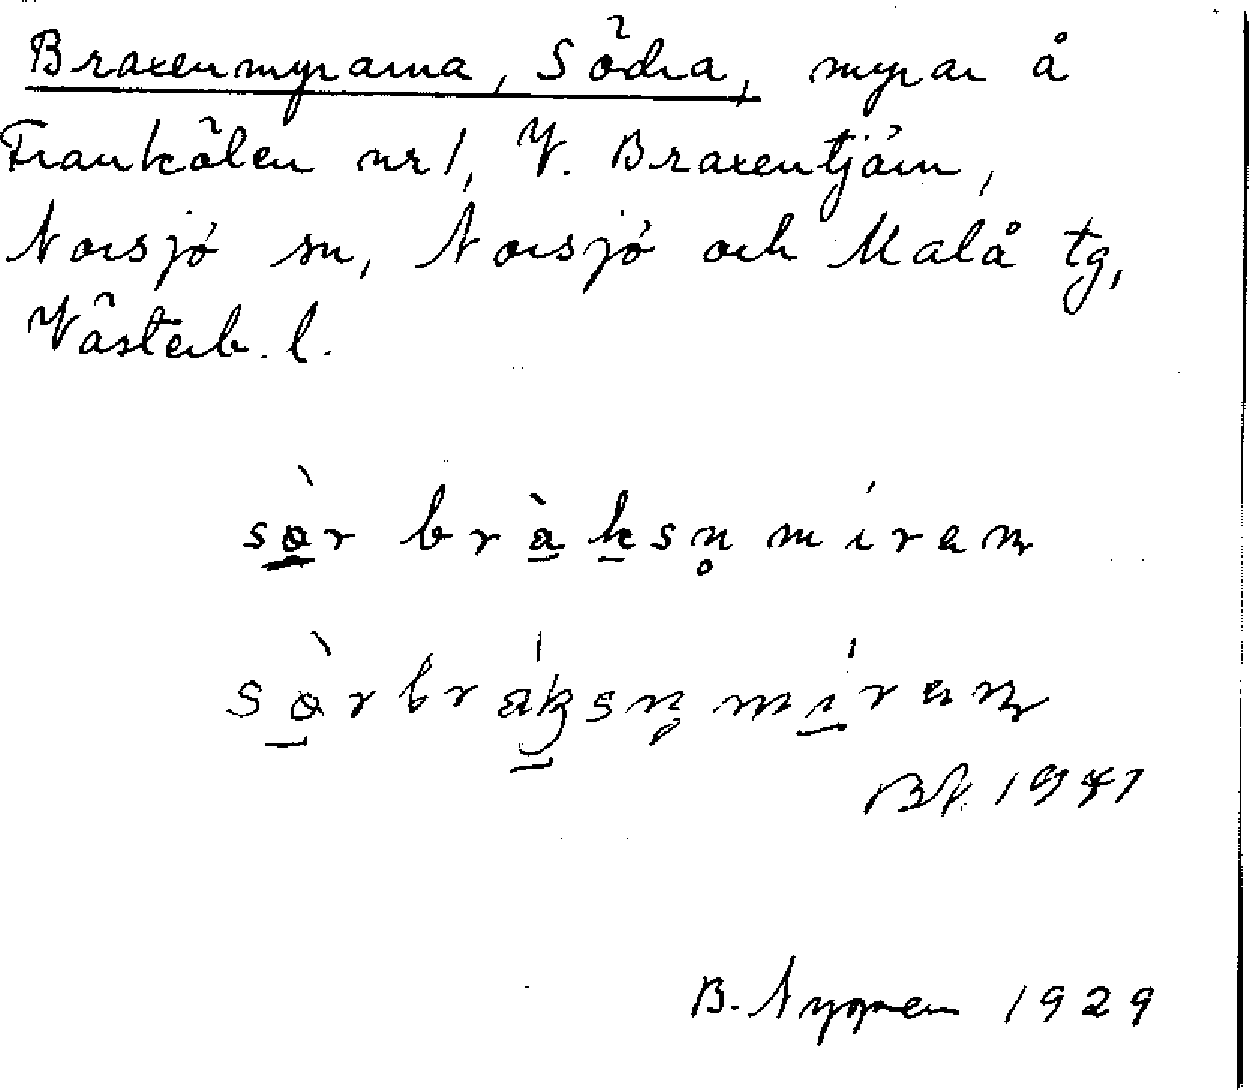 Braxenmyrarna, Södra, myrar å
Frankälen nr 1, V. Braxentjärn,
Norsjö sn, Norsjö och Malå tg,
Västerb. l.
sə̀r bràksn̥ míran
sə̀rbráksn̥míran
1941
B. Nygren 1929